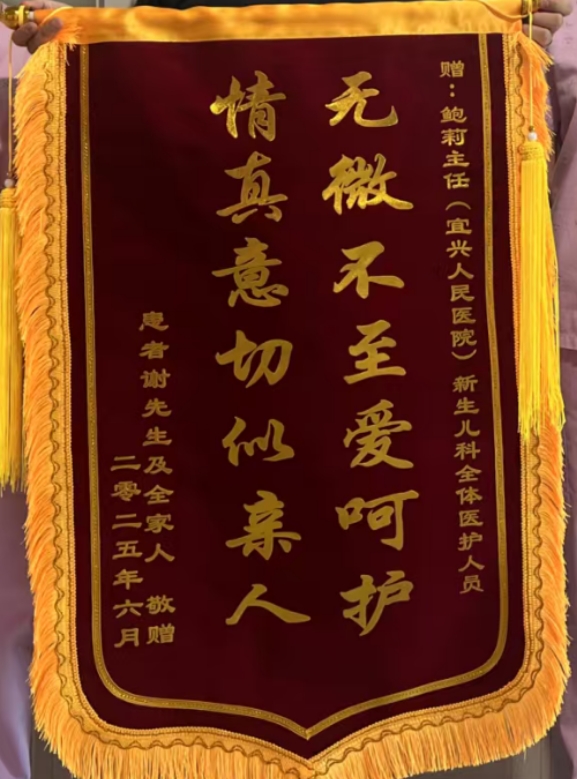 赠：鲍莉主任（宜兴人民医院）新生儿科全体医护人员
无微不至爱呵护
情真意切似亲人
患者谢先生及全家人 敬赠
二零二五年六月